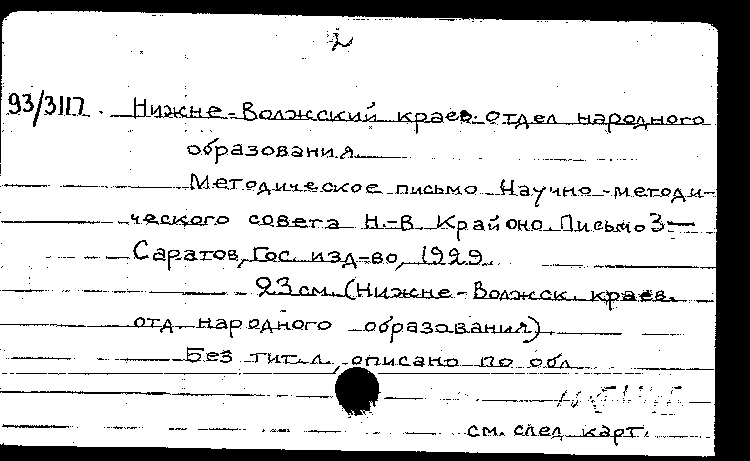 2
93/3117. Нижне-Волжский краев. отдел народного
образования.
Методическое письмо Научно-методи-
ческого совета Н.-В. Крайоно. Письмо 3—
Саратов, Гос. изд-во, 1929.
23 см. (Нижне-Волжск. краев.
отд. народного образования).
Без тит. л., описано по обл.
см. след. карт.